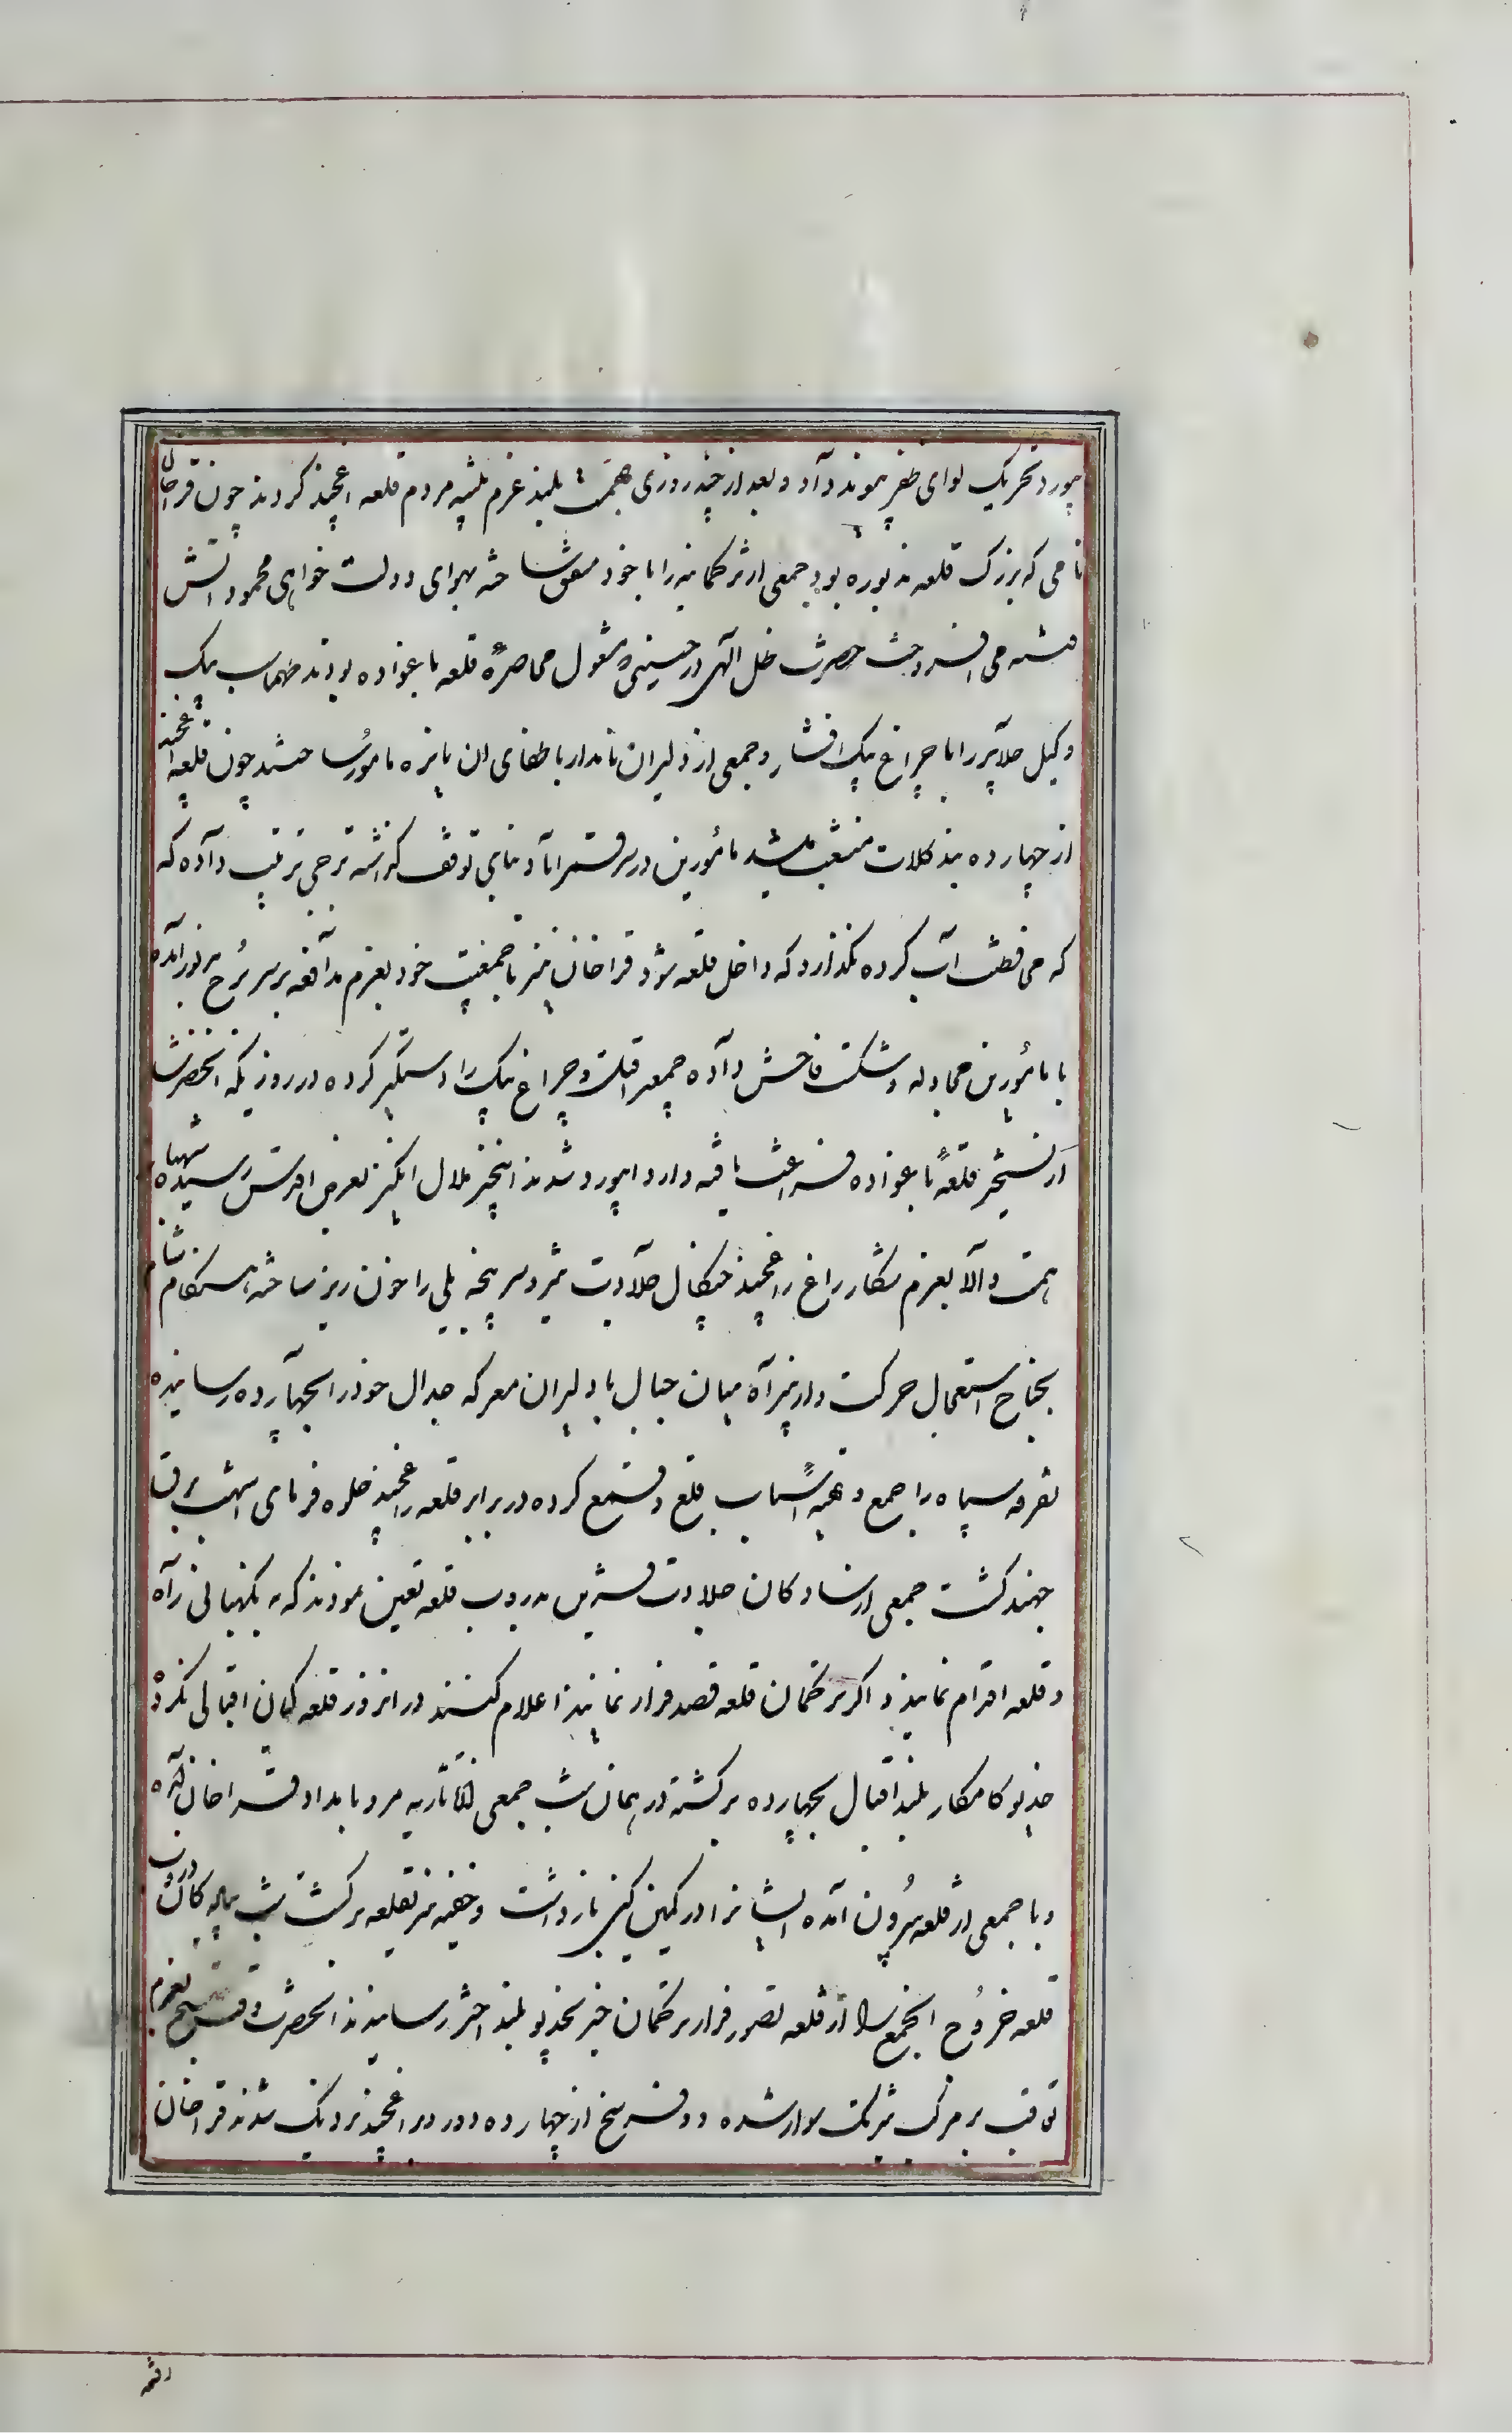 ابیورد تحریک لوای ظفر پیوند داد و بعد از چند روزی همت بلند عزم تنبیه مردم قلعه زاغچند کردند چون قراخان
نامی که بزرگ قلعه مذبوره بود جمعی از ترکمانیه را با خود متفق ساخته بهوای دولت خواهی محمود آتش
فتنه می افروخت حضرت ظل الهی در حینی که مشغول محاصره قلعه باغواده بودند طهماسب بیک
وکیل جلایر را با چراغ بیک افشار و جمعی از دلیران نامدار باطفای آن نایره مامور ساختند چون قلعه زاغچند
از چهارده بند کلات منشعب میشد مأمورین در سر قنبرآباد بنای توقف گذاشته ترحمی ترتیب داده که
که محافظت آب کرده نگذارد که داخل قلعه شود قراخان نیز با جمعیت خود بعزم مدافعه بر سر برج مزبور آمده
با مأمورین مجادله و شکست فاحش داده جمعی را قتل و چراغ بیک را دستگیر کرده در روزیکه آنحضرت
از تسخیر قلعه باغواده فراغت یافته وارد ابیورد شدند اینخبر ملال انگیز بعرض اقدس رسیده شهباز
همت والا بعزم شکار زاغ زاغچند چنگال جلادت تیز و سر پنجه یلی را خون ریز ساخته هنگام شام
بجناح استعجال حرکت و از بیراه میان جبال با دلیران معرکه جدال خود را بچهارده رسانیده
تفرقه سپاه را جمع و تهیه اسباب قلع و قمع کرده در برابر قلعه زاغچند جلوه فرمای اشهب برق
جهند گشت جمعی از ستادکان جلادت قرین بدروب قلعه تعیین نمودند که به نگهبانی راه
و قلعه اقدام نمایند و اگر ترکمان قلعه قصد فرار نمایند اعلام کنند در انروز قلعه کیان اقبالی نکرده
خدیو کامکار بلند اقبال بچهارده برگشته در همان شب جمعی از تاتاریه مرو بامداد قراخان آمده
و با جمعی از قلعه بیرون آمده ایشانرا در کمین کین بازداشت و خفیه نیز بقلعه برگشت شب
قلعه خروج انجمع را از قلعه تصور فرار ترکمان خبر بخدیو بلند اختر رسانیدند آنحضرت وقت صبح بعزم
تعاقب بر مرکب تیزتک سوار شده دو فرسخ از چهارده دور در زاغچند نزدیک شدند قراخان